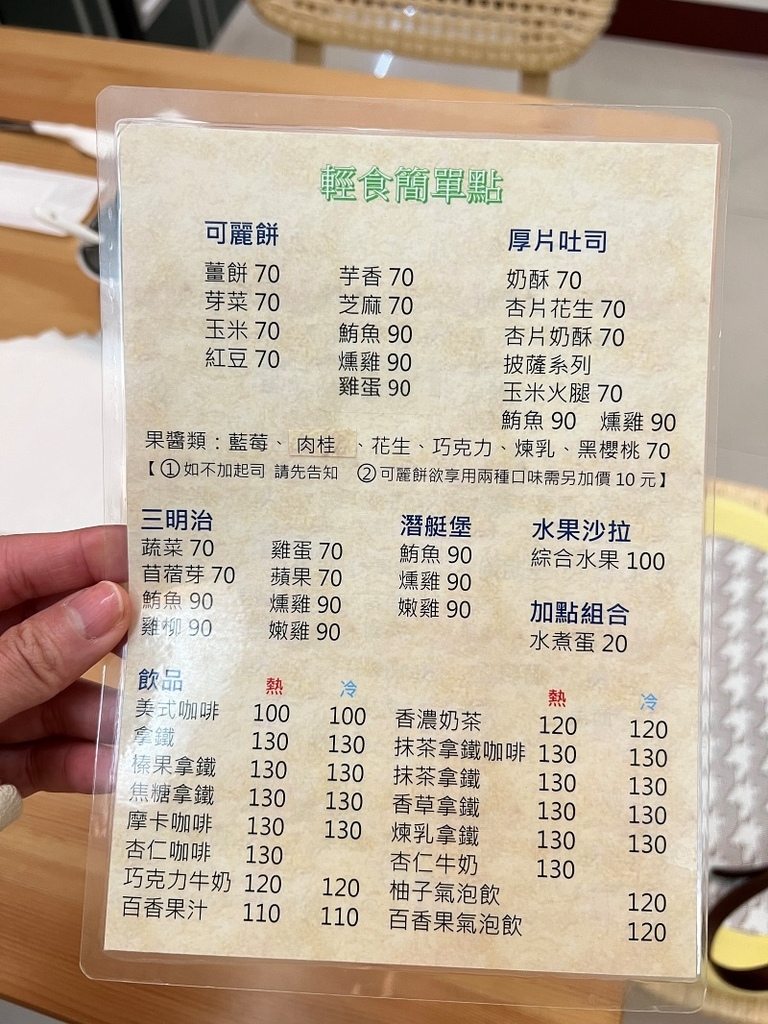 輕食簡單點
可麗餅
薑餅 70 芋香 70
芽菜 70 芝麻 70
玉米 70 鮪魚 90
紅豆 70 燻雞 90
雞蛋 90
厚片吐司
奶酥 70
杏片花生 70
杏片奶酥 70
披薩系列
玉米火腿 70
鮪魚 90 燻雞 90
果醬類：藍莓、肉桂、花生、巧克力、煉乳、黑櫻桃 70
【①如不加起司 請先告知 ②可麗餅欲享用兩種口味需另加價 10 元】
三明治
蔬菜 70 雞蛋 70
苜蓿芽 70 蘋果 70
鮪魚 90 燻雞 90
雞柳 90 嫩雞 90
潛艇堡
鮪魚 90
燻雞 90
嫩雞 90
水果沙拉
綜合水果 100
加點組合
水煮蛋 20
飲品 熱 冷
美式咖啡 100 100
拿鐵 130 130
榛果拿鐵 130 130
焦糖拿鐵 130 130
摩卡咖啡 130 130
杏仁咖啡 130
巧克力牛奶 120 120
百香果汁 110 110
熱 冷
香濃奶茶 120 120
抹茶拿鐵咖啡 130 130
抹茶拿鐵 130 130
香草拿鐵 130 130
煉乳拿鐵 130 130
杏仁牛奶 130
柚子氣泡飲 120
百香果氣泡飲 120